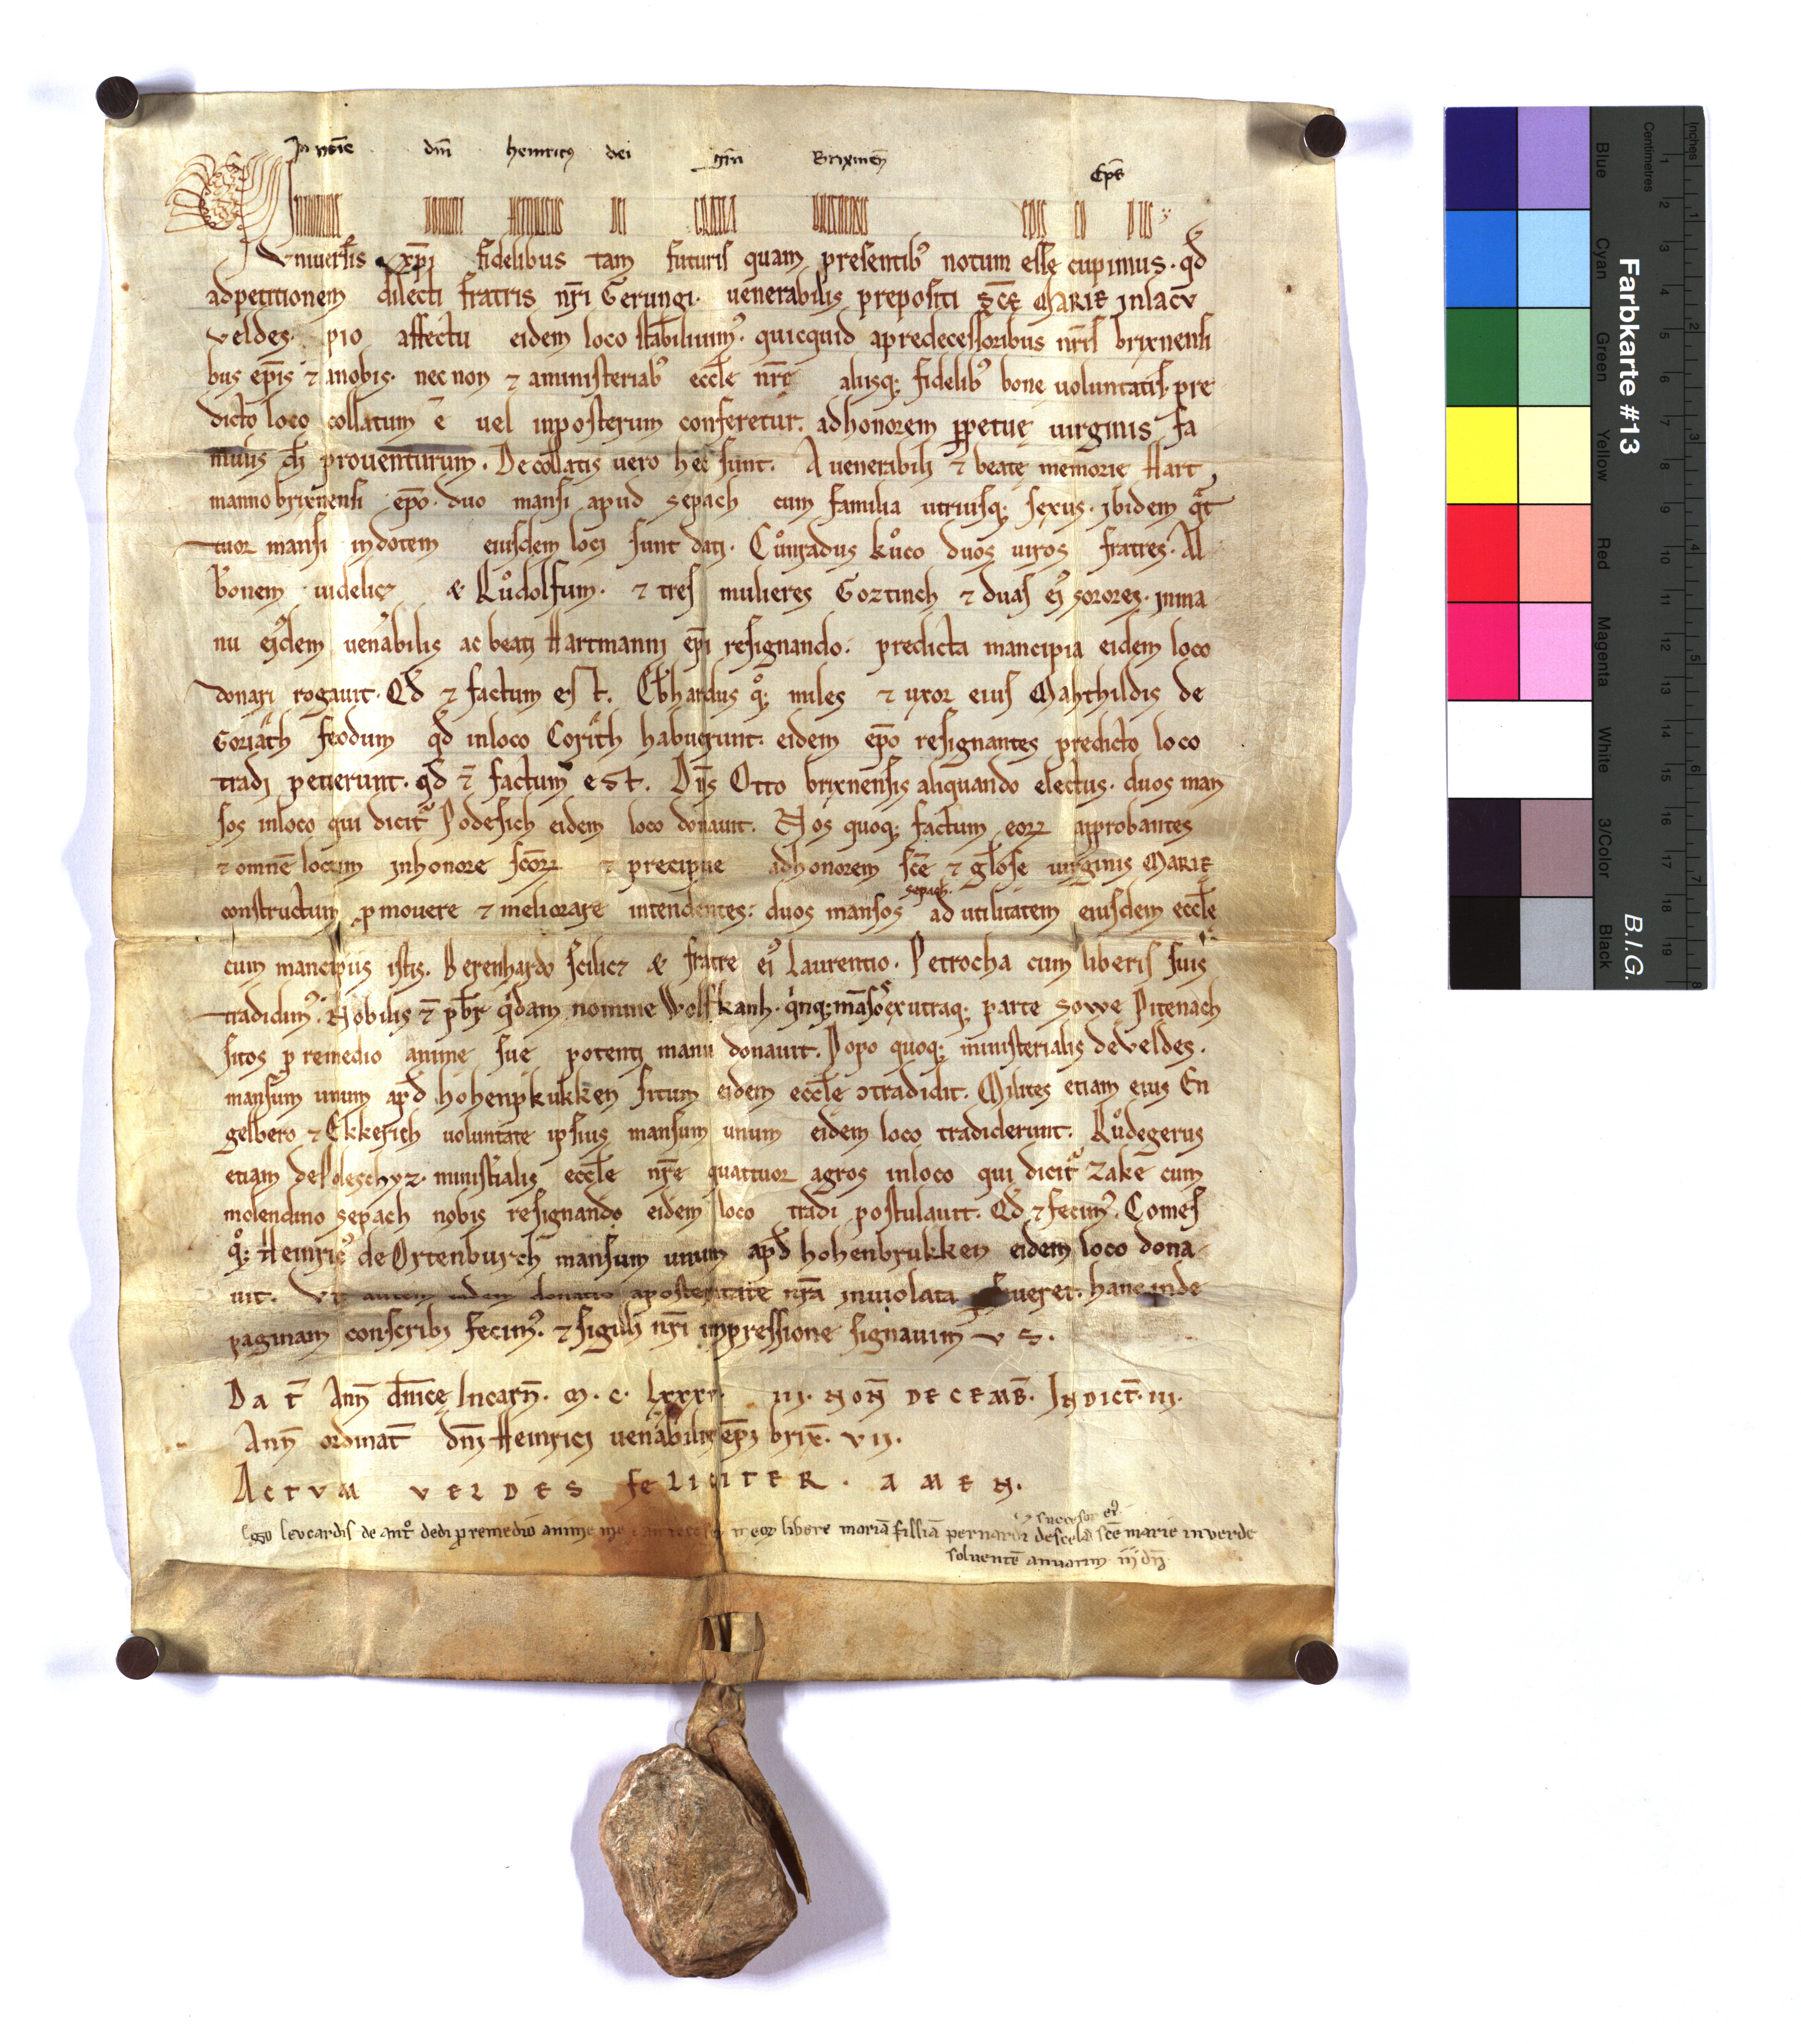 In noīe dn̄i heinricꝯ dei grā Brixinen̄ Ep̄c
Vniuersis xp̄i fidelibus tam futuris quam presentibꝰ notum esse cupimus. qd̄
ad petitionem dilecti fratris nr̄i Gerungi. uenerabilis prepositi sc̄ę MARIE in lacu
veldes. pio affectu eidem loco stabiliuimꝰ. quicquid a predecessoribus nr̄is brixnensi
bus ep̄is ⁊ a nobis. nec non ⁊ a ministeriabꝰ eccl̄e nr̄e aliisq; fidelibꝰ bone uoluntatis. pre
dicto loco collatum ē uel in posterum conferetur. ad honorem ꝑpetuę uirginis fa
mulis prouenturum. De collatis uero hec sunt. A uenerabili ⁊ beate memorie Hart
manno brixnensi ep̄o. duo mansi apud sepach cum familia utriusq; sexus. ibidem qͣt
tuor mansi in dotem eiusdem loci sunt dati. Cůnradus kůco duos uiros fratres. Al
bonem uidelicz & Růdolfum. ⁊ tres mulieres Goztinch ⁊ duas eiꝰ sorores. in ma
nu eiꝰdem uenabilis ac beati Hartmanni ep̄i resignando. predicta mancipia eidem loco
donari rogauit. Qd̄ ⁊ factum est. Eb̄hardus qͦ; miles ⁊ uxor eius Mahthildis de
Goriach feodum qd̄ in loco Gorich habuerunt. eidem ep̄o resignantes predicto loco
tradi petierunt. qd̄ ⁊ factum est. Dn̄s Otto brixnensis aliquando electus. duos man
sos in loco qui dicitᷣ Podesich eidem loco donauit. Nos quoq; factum eoꝝ approbantes
⁊ omnē locum in honore sc̄oꝝ ⁊ precipue ad honorem sc̄e ⁊ gl̄ose uirginis MARIE
constructum ꝓmouere ⁊ meliorare intendentes. duos mansos sepach. ad utilitatem eiusdem eccl̄ę
cum mancipiis istis. Berenhardo scilicz & fratre eiꝰ Laurentio. Petrocha cum liberis suis
tradidimꝰ. Nobilis ⁊ pb̄r qͥdam nomine Wolfkanh. qͥnq; māsos ex utraq; parte sowe Pitenach
sitos ꝓ remedio anime sue potenti manu donauit. Popo quoq; ministerialis de Veldes.
mansum unum apd̄ hohenpkukken situm eidem eccl̄e ɔtradidit. Milites etiam eius En
gelbero ⁊ Ekkerich uoluntate ipsius mansum unum eidem loco tradiderunt. Růdegerus
etiam de Poleschyz. ministialis eccl̄e nr̄e quattuor agros in loco qui dicitᷣ zakē cum
molendino sepach nobis resignando eidem loco tradi postulauit. Qd̄ ⁊ fecimꝰ. Comes
qͦ; Heinricꝰ de Ortenburch mansum unum apd̄ hohenbrukken eidem loco dona
uit. Vt autem eadem donatio a posteritate nr̄a inuiolata hanc inde
paginam conscribi fecimꝰ. ⁊ sigilli nr̄i inpressione signauimus.
Dat̄ Ann̄ dn̄icę Incarn̄. M. C. Lxxx. III. NON̄ DECEMB̄. INDICT̄. III.
Ann̄ ordinat̄ dn̄i Heinrici uenabilis ep̄i brix̄. VII.
ACTVM VELDES feLICITER. AMEN.
Ego leucardis de dedi ꝑ remedio anime meoꝝ libere mariā filliā pernardi de scē marie in verde
⁊ successor eiꝰ
soluentē annuatim iiij dn̄
Farbkarte #13
B.I.G.
Inches
Centimetres
Blue
Cyan
Green
Yellow
Red
Magenta
White
3/Color
Black
1 2 3 4 5 6 7 8 9 10 11 12 13 14 15 16 17 18 19
1 2 3 4 5 6 7 8